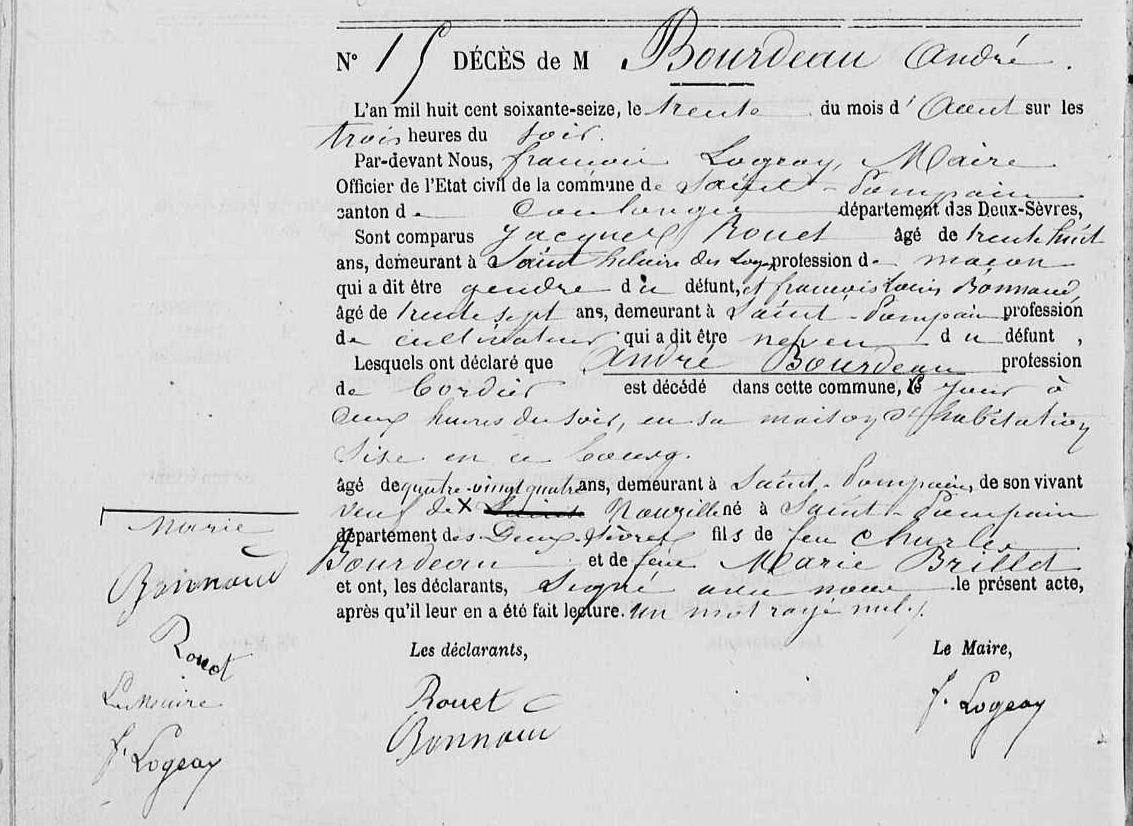 N° 15 DÉCÈS de M Bourdeau André.
L'an mil huit cent soixante-seize, le trente du mois d'Aout sur les
trois heures du soir.
Par-devant Nous, francois Logeay, Maire
Officier de l'Etat civil de la commune de Saint-Pompain
canton de Coulonges département des Deux-Sèvres,
Sont comparus Jacques Rouet âgé de trente huit
ans, demeurant à Saint hilaire des Loges profession de maçon
qui a dit être gendre du défunt, et francois Louis Bonnaud,
âgé de trente sept ans, demeurant à Saint-Pompain profession
de cultivateur qui a dit être neveu du défunt,
Lesquels ont déclaré que André Bourdeau profession
de Cordier est décédé dans cette commune, ce jour à
deux heures du soir, en sa maison d'habitation
sise en ce bourg.
âgé de quatre-vingt quatre ans, demeurant à Saint-Pompain, de son vivant
veuf de X Nouzille né à Saint-Pompain
département des Deux-Sèvres fils de feu Charles
Bourdeau et de feue Marie Brillot
et ont, les déclarants, Signé avec nous le présent acte,
après qu'il leur en a été fait lecture. un mot rayé nul.
X
Marie
Bonnaud
Rouet
Le Maire
f. Logeay
Les déclarants,
Rouet
Bonnaud
Le Maire,
f. Logeay